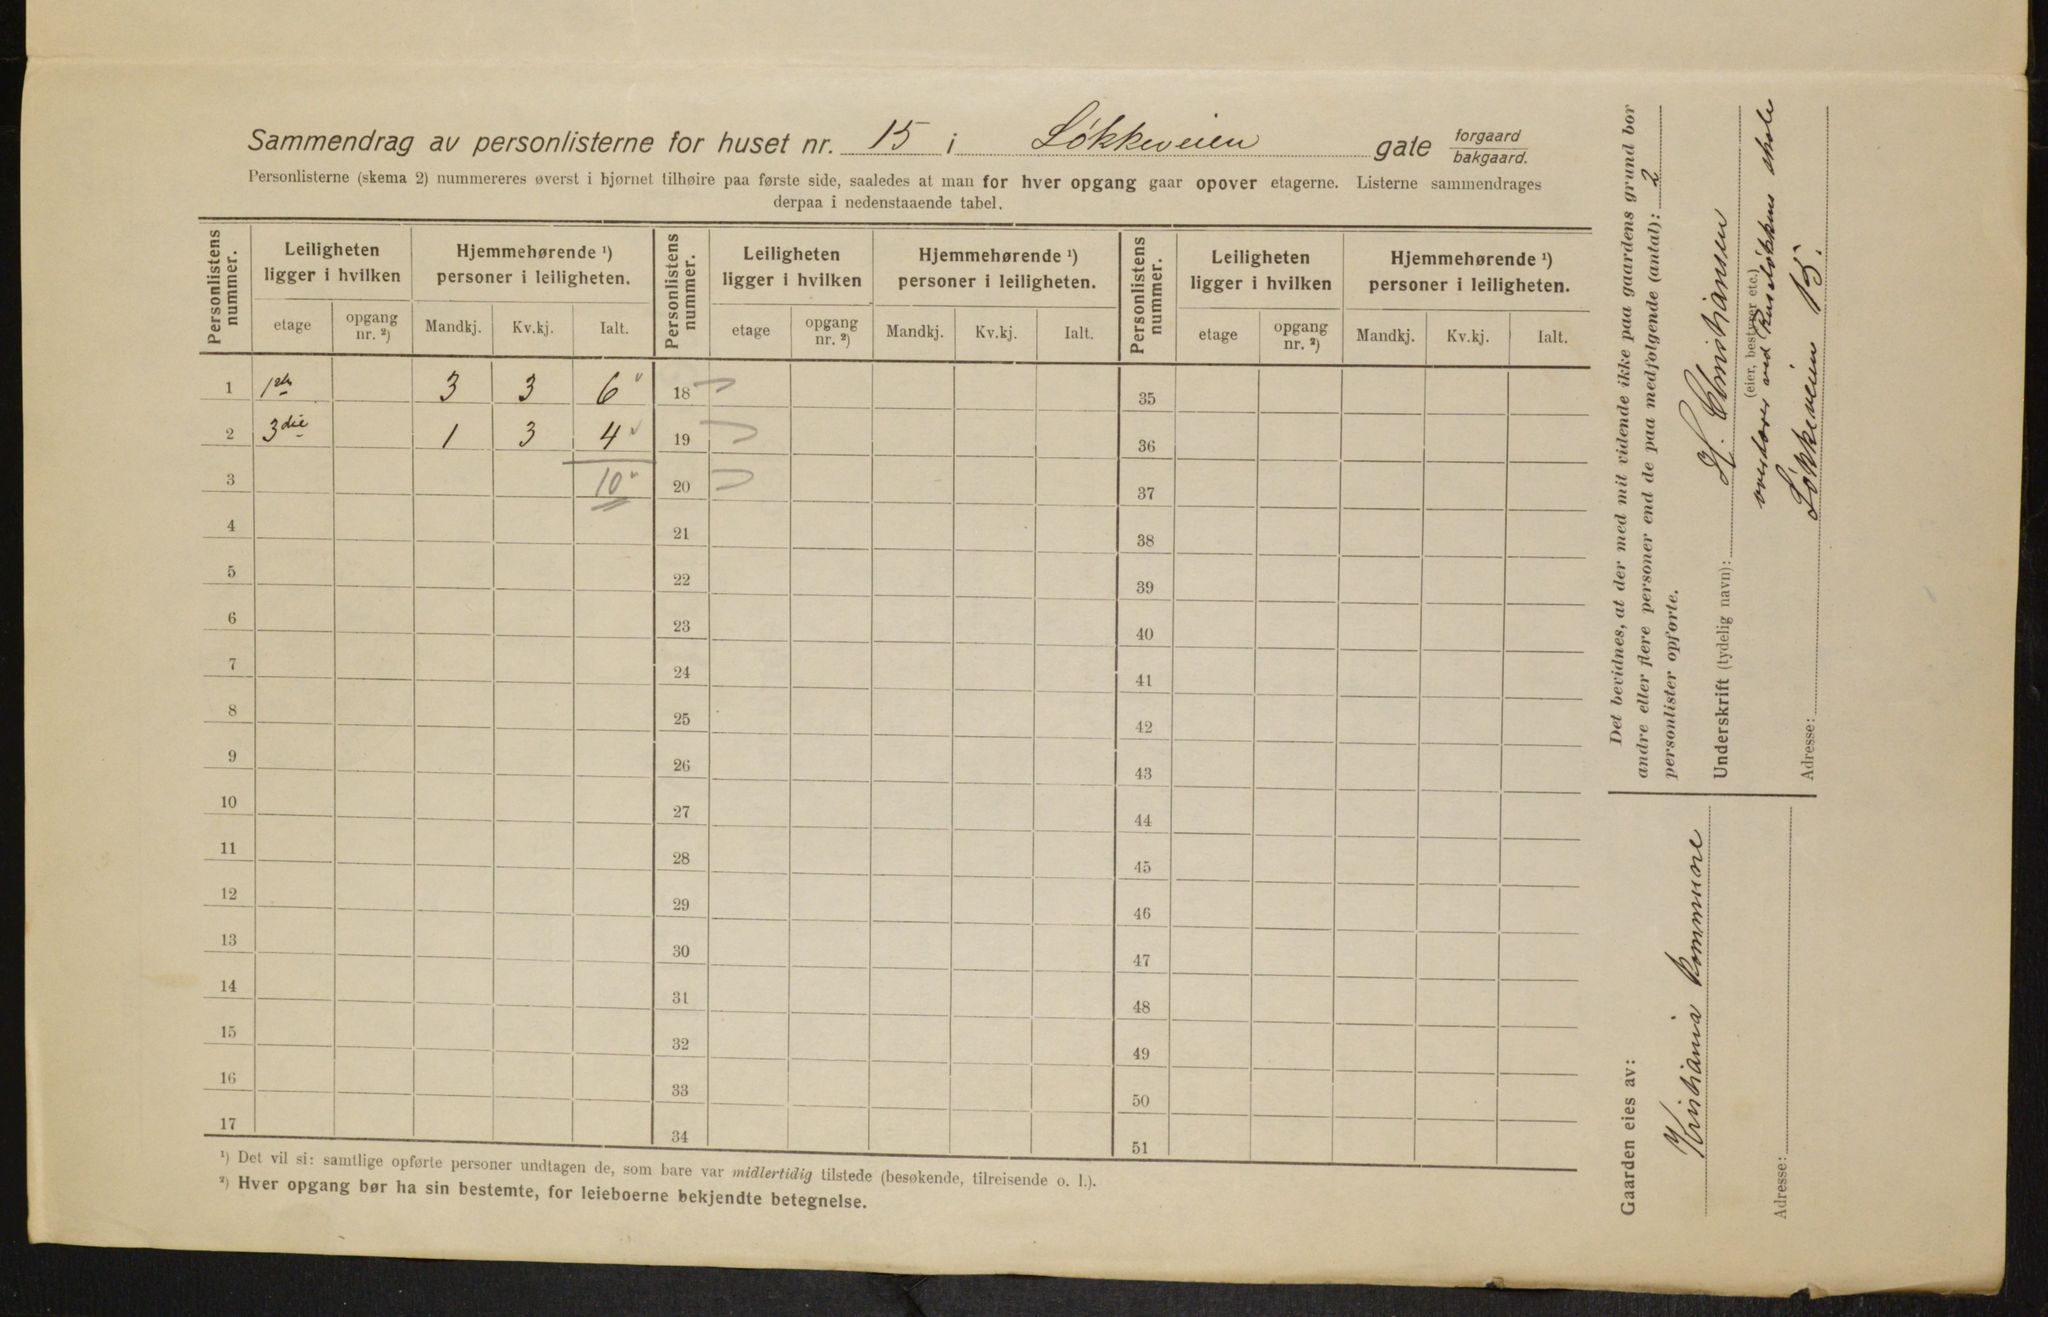 Sammendrag av personlisterne for huset nr. 15 i Løkkeveien gate forgaard bakgaard.
Personlisterne (skema 2) nummereres øverst i hjørnet tilhøire paa første side, saaledes at man for hver opgang gaar opover etagerne. Listerne sammendrages
derpaa i nedenstaaende tabel.
Personlistens nummer. Leiligheten ligger i hvilken Hjemmehørende ¹) personer i leiligheten. Personlistens nummer. Leiligheten ligger i hvilken Hjemmehørende ¹) personer i leiligheten. Personlistens nummer. Leiligheten ligger i hvilken Hjemmehørende ¹) personer i leiligheten.
etage opgang nr. ²) Mandkj. Kv.kj. Ialt. etage opgang nr. ²) Mandkj. Kv.kj. Ialt. etage opgang nr. ²) Mandkj. Kv.kj. Ialt.
1 1ste 3 3 6 18 35
2 3die 1 3 4 19 36
3 10 20 37
4 21 38
5 22 39
6 23 40
7 24 41
8 25 42
9 26 43
10 27 44
11 28 45
12 29 46
13 30 47
14 31 48
15 32 49
16 33 50
17 34 51
¹) Det vil si: samtlige opførte personer undtagen de, som bare var midlertidig tilstede (besøkende, tilreisende o. l.).
²) Hver opgang bør ha sin bestemte, for leieboerne bekjendte betegnelse.
Det bevidnes, at der med mit vidende ikke paa gaardens grund bor
andre eller flere personer end de paa medfølgende (antal): 2
personlister opførte.
Underskrift (tydelig navn): H. Christiansen
(eier, bestyrer etc.)
ved Ruseløkkens skole
Adresse: Løkkeveien 15.
Gaarden eies av:
Kristiania kommune
Adresse: